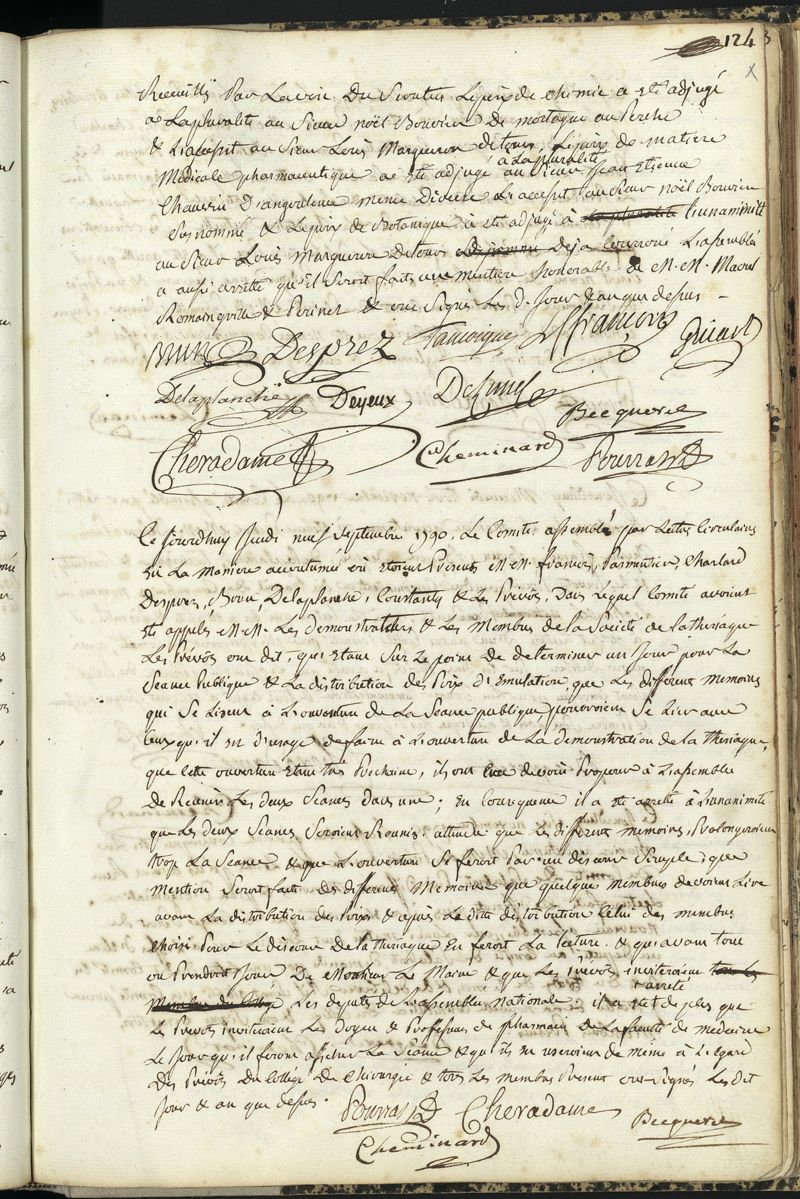 124
Recueilly Par La voie Du Scrutin Le prix de chimie a eté adjugé
a La pluralité au Sieur noël Bouvier De mortagne au Perche
& L'accessit au Sieur Louis Margueron de tours, Le prix de matiere
Medicale pharmaceutique a eté adjugé a La pluralité au Sieur Jean Etienne
Chauvin D'angerdence meme Diocese L'accessit au Sieur noël Bouvier
Susnommé & Le prix de Botanique a eté adjugé a la pluralité L'unanimité
au Sieur Louis Margueron de tours deja Couronné L'assemblée
a aussi arretté qu'il Seroit fait une mention honorable de M. M.
Romainville & Perinet & ont Signé Les d. Jour & an que dessus –
Desprez françois Guiart
Delaplanche Deyeux Becquerel
Cheradame Cheminard Pourrat
Ce jourdhuy Jeudi neuf Septembre 1790. Le Comité assemblé par Lettres Circulaires
En La maniere accoutumée où etoient Presents M. M. françois, Parmentier, Charlard
Desprez, Brun, Delaplanche, Constants & Les Prévôts, Dans Lequel Comité avoient
eté appelés M. M. Les demonstrateurs & Les Membres de la Societé de la theriaque
Les Prévôts ont dit, qu'etant Sur Le point de determiner un Jour pour La
Seance Publique & La distribution des Prix d'Emulation, que Les differents memoires
qui Se Lisent à L'ouverture de La Seance publique, pourroient Se Lier avec
Ceux qu'il est d'usage de faire à L'ouverture de La demonstration de la theriaque,
que cette ouverture Etant trés Prochaine, ils ont Crus devoir Proposer à L'assemblée
de Reunir Les deux Seances dans une; En Consequence il a eté arreté à L'unanimité
que Les deux Seances Seroient Reunies. attendu que Les differents memoires, Prolongeroient
trop La Seance & que L'ouverture Se feroit Par un discours Simple, que
Mention Seroit faite des differents Memoires que quelques membres devoient Lire
avant La distribution des Prix & après La ditte distribution Celui des membres
Choisi Pour Le discours de la theriaque En feroit La Lecture. & qu'avant tout
on Prendroit Jour De Monsieur Le Maire & que Les Prévôts inviteroient tous Les
Membres du College Les deputés de L'assemblée nationale: il a eté arreté de plus que
Les Prevots inviteroient Les Doyen & Professeurs de pharmacie de La faculté de medecine
Le Jour qu'il feront afficher La Seance & qu'ils en useroient de même à L'egard
Des Prévôts Du Collége De Chirurgie & tous Les membres Present ont Signés Les Dit
Jour & an que dessus. Pourrat Cheradame Becquerel
Cheminard